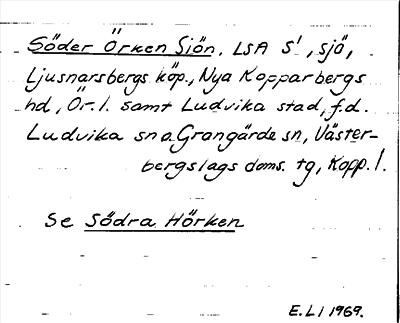 Söder Örken Sjön, LSA S!, sjö,
Ljusnarsbergs köp., Nya Kopparbergs
hd, Ör. l. samt Ludvika stad, f.d.
Ludvika sn o. Grangärde sn, Väster-
bergslags doms. tg, Kopp. l.
Se Södra Hörken
E.L l 1969.